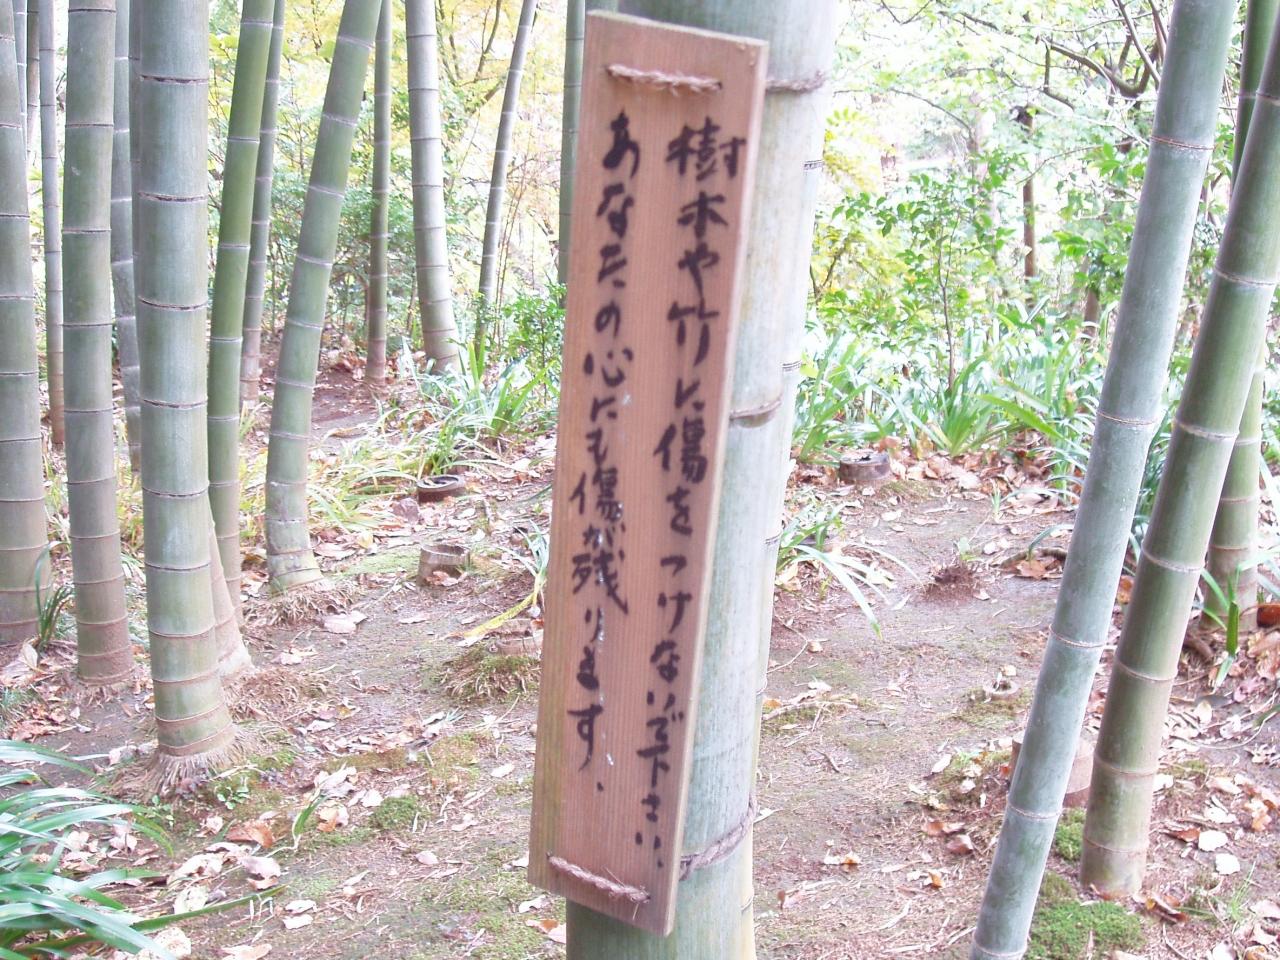 樹木や竹に傷をつけないで下さい、
あなたの心にも傷が残ります、